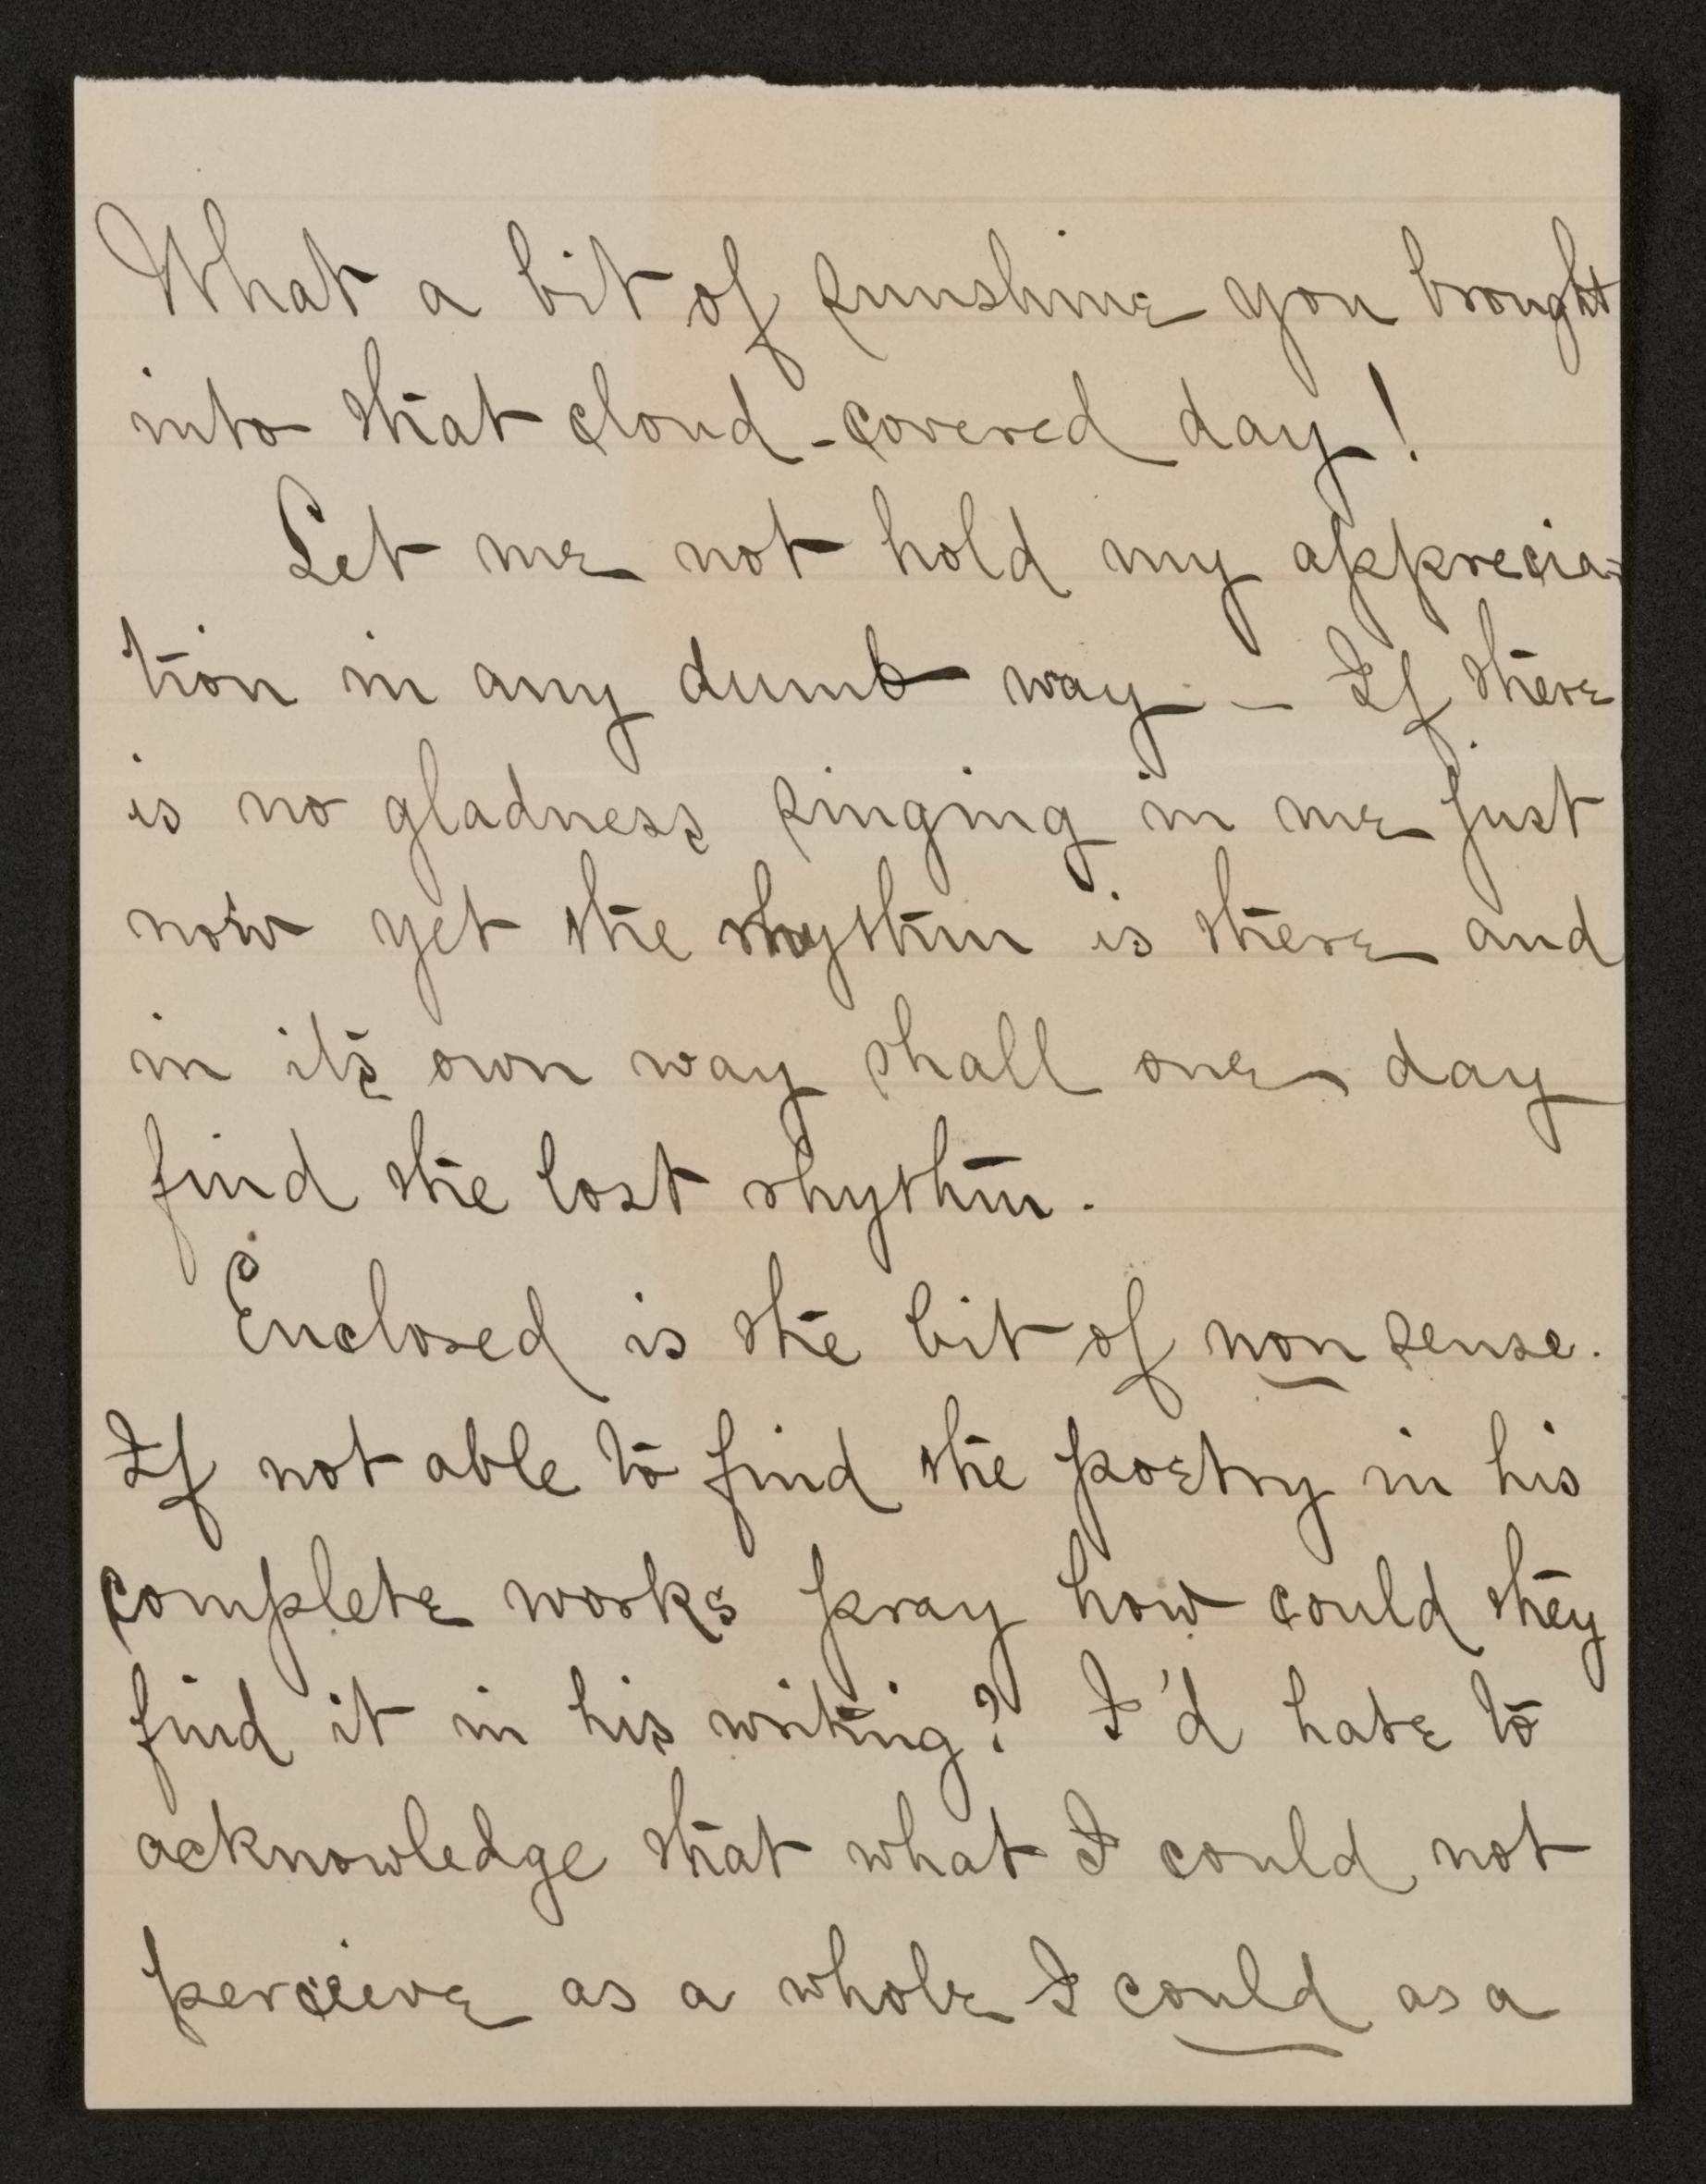 What a bit of sunshine you brought
into that cloud-covered day!
Let me not hold my apprecia-
tion in any dumb way — If there
is no gladness singing in me just
now yet the rhythm is there and
in it's own way shall one day
find the lost rhythm.
Enclosed is the bit of non sense.
If not able to find the poetry in his
complete works pray how could they
find it in his writing? I'd hate to
acknowledge that what I could not
perceive as a whole I could as a